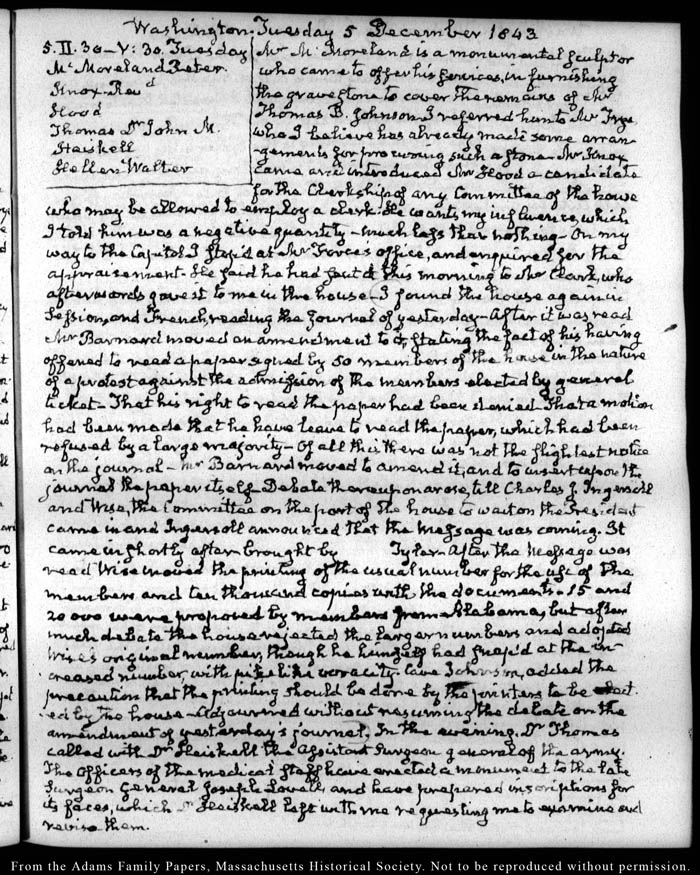 Washington. Tuesday 5 December 1843
5. II. 30 – V: 30. Tuesday
McMoreland Peter.
Knox. Revd
Hood
Thomas Dr John M.
Heiskell
Hellen Walter
Mr McMoreland is a monumental Sculptor
who came to offer his services, in furnishing
the grave stone to cover the remains of Mr
Thomas B. Johnson. I referred him to Mr Frye
who I believe has already made some arran-
gements for procuring such a stone. Mr Knox
came and introduced Mr Hood a candidate
for the Clerkship of any Committee of the house
who may be allowed to employ a clerk. He wants my influence, which
I told him was a negative quantity – much less than nothing – On my
way to the Capitol I stop'd at Mr Force's office, and enquired for the
appraisement. He said he had sent it this morning to Mr Clark, who
afterwards gave it to me in the house – I found the house again in
Session, and French, reading the Journal of yesterday – After it was read
Mr Barnard moved an amendment to it, stating the fact of his having
offered to read a paper signed by 50 members of the house in the nature
of a protest against the admission of the members elected by general
ticket – That his right to read the paper had been denied – That a motion
had been made that he have leave to read the paper, which had been
refused by a large majority – Of all this there was not the slightest notice
on the journal – Mr Barnard moved to amend it, and to insert upon the
journal the paper itself – Debate thereupon arose, till Charles J. Ingersoll
and Wise, the Committee on the part of the house to wait on the President
came in and Ingersoll announced that the Message was coming. It
came in shortly after brought by Tyler – After the Message was
read Wise moved the printing of the usual number for the use of the
members and ten thousand copies with the documents. 15 and
20 000 were proposed by members from Alabama, but after
much debate the house rejected the larger numbers and adopted
Wise's original number, though he himself had snap'd at the in-
creased number, with pike like voracity. Cave Johnson, added the
precaution that the printing should be done by the printers to be elect-
ed by the house – Adjourned without resuming the debate on the
amendment of yesterday's journal. In the evening, Dr Thomas
called with Dr Heiskell the assistant Surgeon general of the army.
The Officers of the medical staff have erected a monument to the late
Surgeon General Joseph Lovell, and have prepared inscriptions for
its faces, which Dr Heiskell left with me requesting me to examine and
revise them.
From the Adams Family Papers, Massachusetts Historical Society. Not to be reproduced without permission.